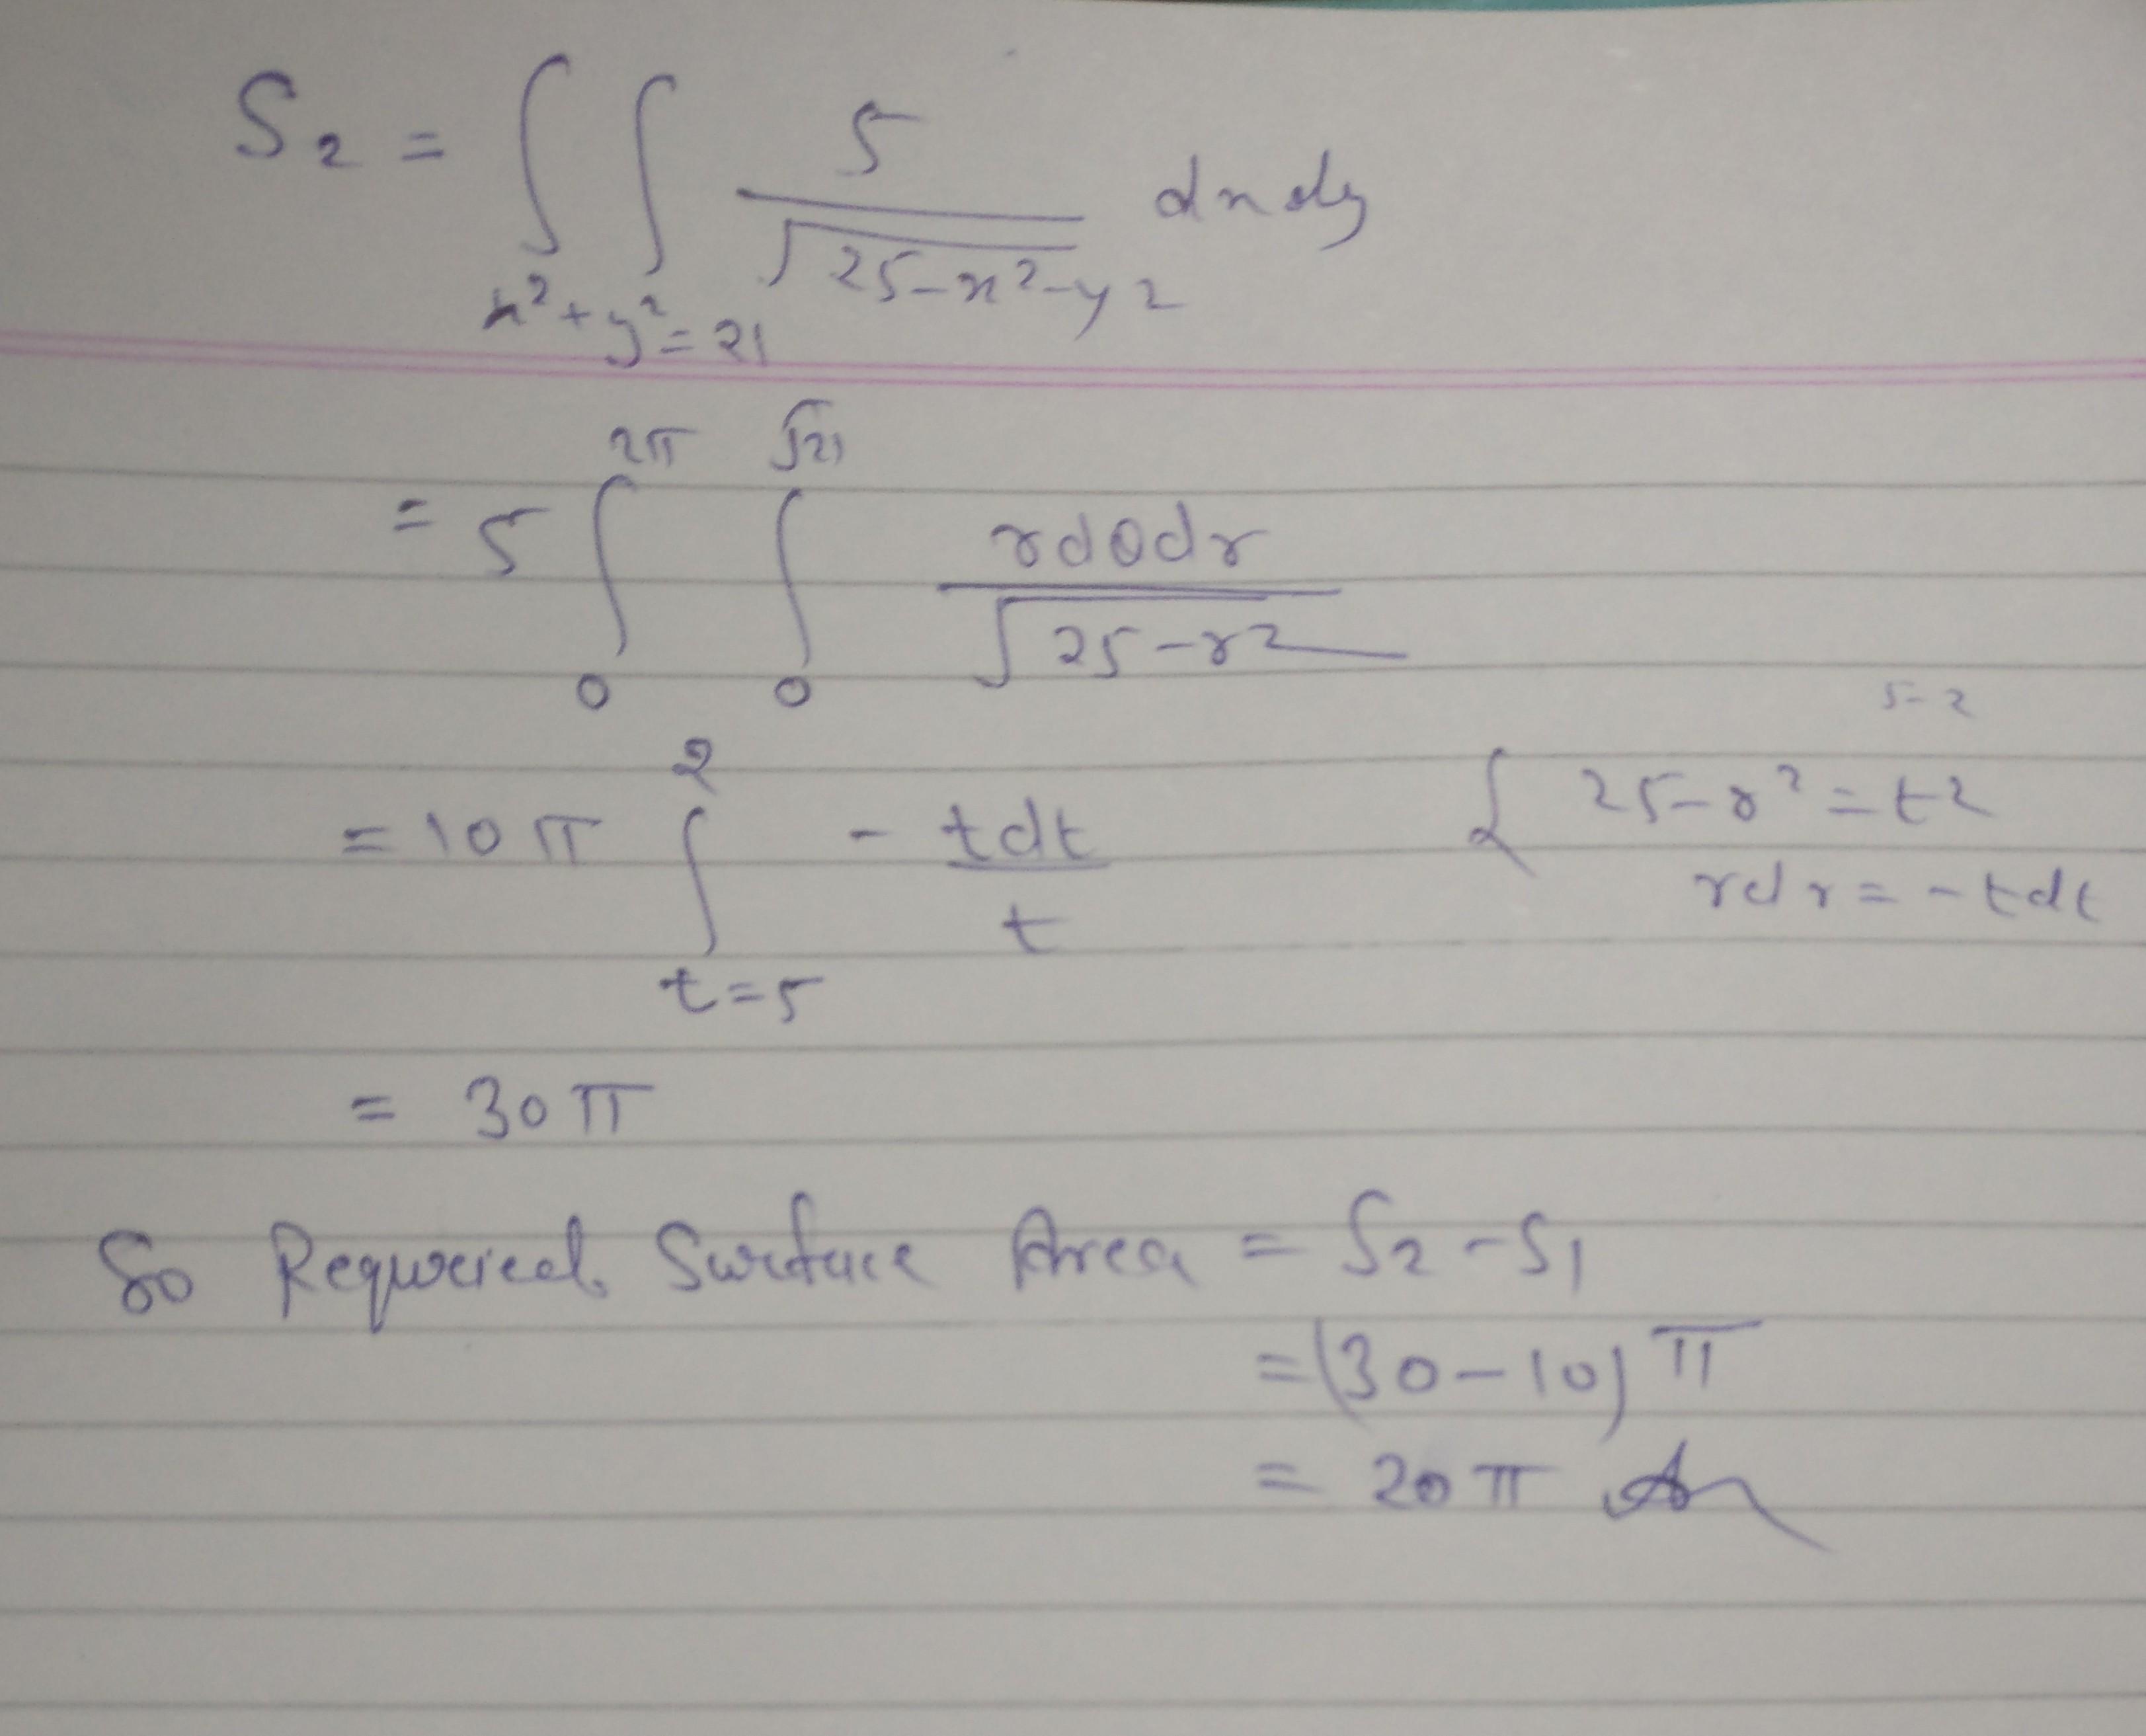 S₂ = ∫∫ 5/√(25-x²-y²) dxdy
x²+y²=21
= 5 ∫₀^2π ∫₀^√21 rdθdr/√(25-r²)
5-2
= 10π ∫_{t=5}^{2} - tdt/t { 25-r²=t²
rdr=-tdt
= 30π
So Requreied Surface Area = S₂-S₁
=(30-10)π
= 20π